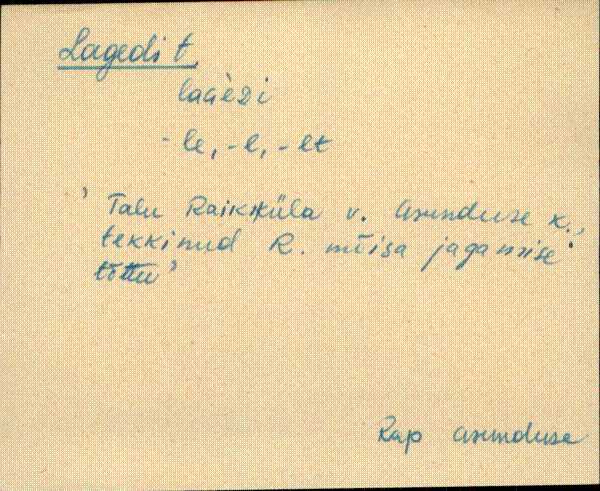 Lagedi t.
lagèzi
-le, -l, -lt
' Talu Raikküla v. Asunduse k.,
tekkinud R. mõisa jagamise
tõttu '
Rap Asunduse